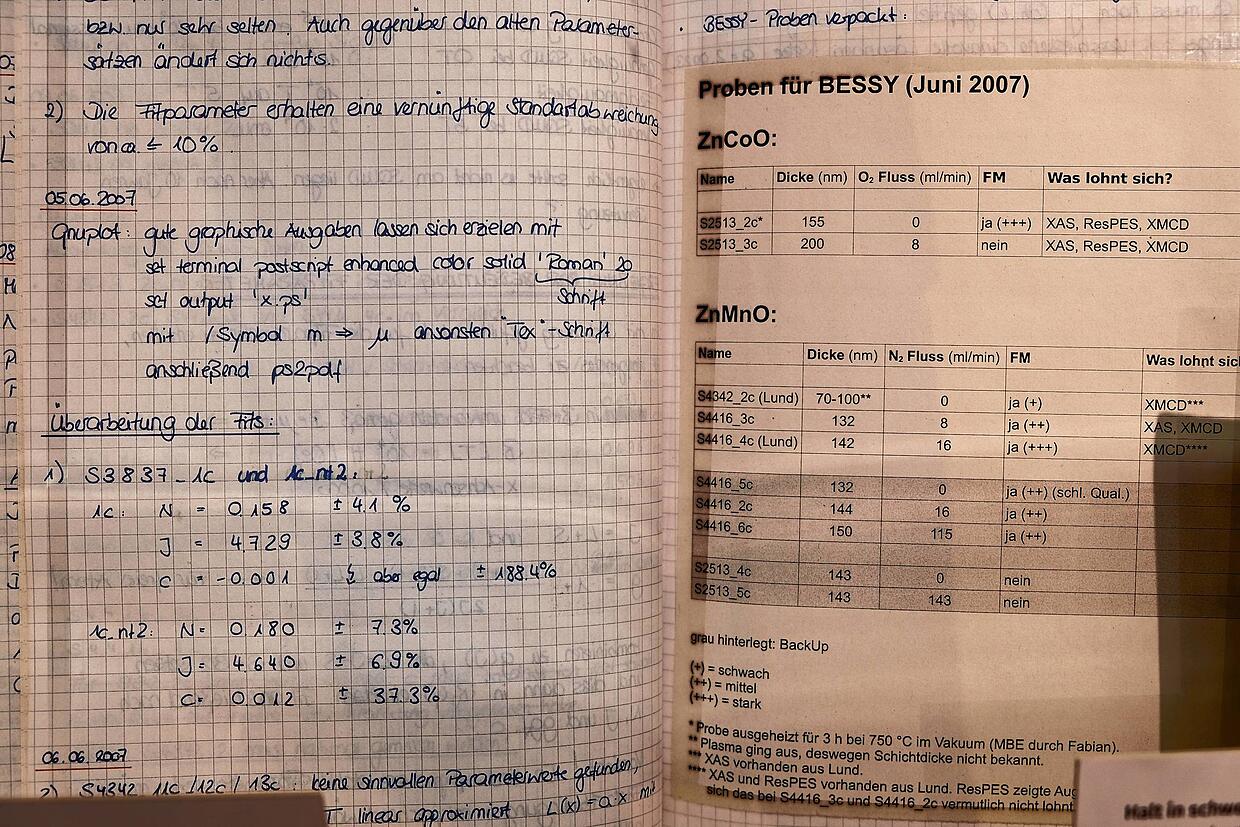 bzw. nur sehr selten. Auch gegenüber den alten Parameter-
sätzen ändert sich nichts.
2) Die Fitparameter erhalten eine vernünftige Standartabweichung
von ca. ≤ 10%.
05.06.2007
Gnuplot: gute graphische Ausgaben lassen sich erzielen mit
set terminal postscript enhanced color solid 'Roman' 20
Schrift
set output 'x.ps'
mit /Symbol m ⇒ μ ansonsten "Tex"-Schrift
anschließend ps2pdf
Überarbeitung der Fits:
1) S3837_1c und 1c_nt2:
1c: N = 0.158 ± 4.1 %
J = 4.729 ± 3.8%
C = -0.001 aber egal ± 188.4%
1c_nt2: N = 0.180 ± 7.3%
J = 4.640 ± 6.9%
C = 0.012 ± 37.3%
06.06.2007
2) S4342_11c/12c/13c: keine sinnvollen Parameterwerte gefunden,
linear approximiert L(x) = a·x mit
BESSY-Proben verpackt:
Proben für BESSY (Juni 2007)
ZnCoO:
Name Dicke (nm) O₂ Fluss (ml/min) FM Was lohnt sich?
S2513_2c* 155 0 ja (+++) XAS, ResPES, XMCD
S2513_3c 200 8 nein XAS, ResPES, XMCD
ZnMnO:
Name Dicke (nm) N₂ Fluss (ml/min) FM Was lohnt sich
S4342_2c (Lund) 70-100** 0 ja (+) XMCD***
S4416_3c 132 8 ja (++) XAS, XMCD
S4416_4c (Lund) 142 16 ja (+++) XMCD****
S4416_5c 132 0 ja (++) (schl. Qual.)
S4416_2c 144 16 ja (++)
S4416_6c 150 115 ja (++)
S2513_4c 143 0 nein
S2513_5c 143 143 nein
grau hinterlegt: BackUp
(+) = schwach
(++) = mittel
(+++) = stark
* Probe ausgeheizt für 3 h bei 750 °C im Vakuum (MBE durch Fabian).
** Plasma ging aus, deswegen Schichtdicke nicht bekannt.
*** XAS vorhanden aus Lund.
**** XAS und ResPES vorhanden aus Lund. ResPES zeigte
sich das bei S4416_3c und S4416_2c vermutlich nicht lohnt
Halt in